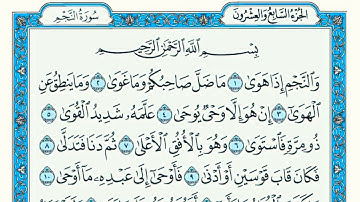 سُورَةُ النَّجْمِ الجُزْءُ السَّابِعُ وَالعِشْرُونَ
بِسْمِ اللَّهِ الرَّحْمَٰنِ الرَّحِيمِ
وَالنَّجْمِ إِذَا هَوَىٰ ١ مَا ضَلَّ صَاحِبُكُمْ وَمَا غَوَىٰ ٢ وَمَا يَنطِقُ عَنِ
الْهَوَىٰ ٣ إِنْ هُوَ إِلَّا وَحْيٌ يُوحَىٰ ٤ عَلَّمَهُ شَدِيدُ الْقُوَىٰ ٥
ذُو مِرَّةٍ فَاسْتَوَىٰ ٦ وَهُوَ بِالْأُفُقِ الْأَعْلَىٰ ٧ ثُمَّ دَنَا فَتَدَلَّىٰ ٨
فَكَانَ قَابَ قَوْسَيْنِ أَوْ أَدْنَىٰ ٩ فَأَوْحَىٰ إِلَىٰ عَبْدِهِ مَا أَوْحَىٰ ١٠